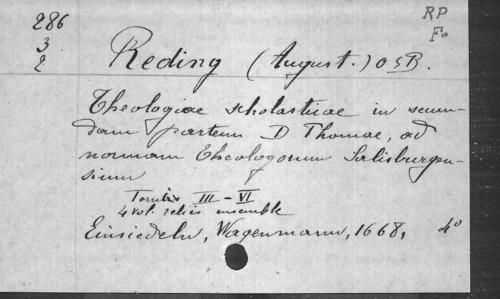 286
3
2
RP
Fo
Reding (August.) OSB.
Theologiae scholasticae in secun-
dam partem D Thomae, ad
normam Theologorum Salisburgen-
sium
Tomus III - VI
4 vol. reliés ensemble
Einsiedeln, Wagenmann, 1668, 4°